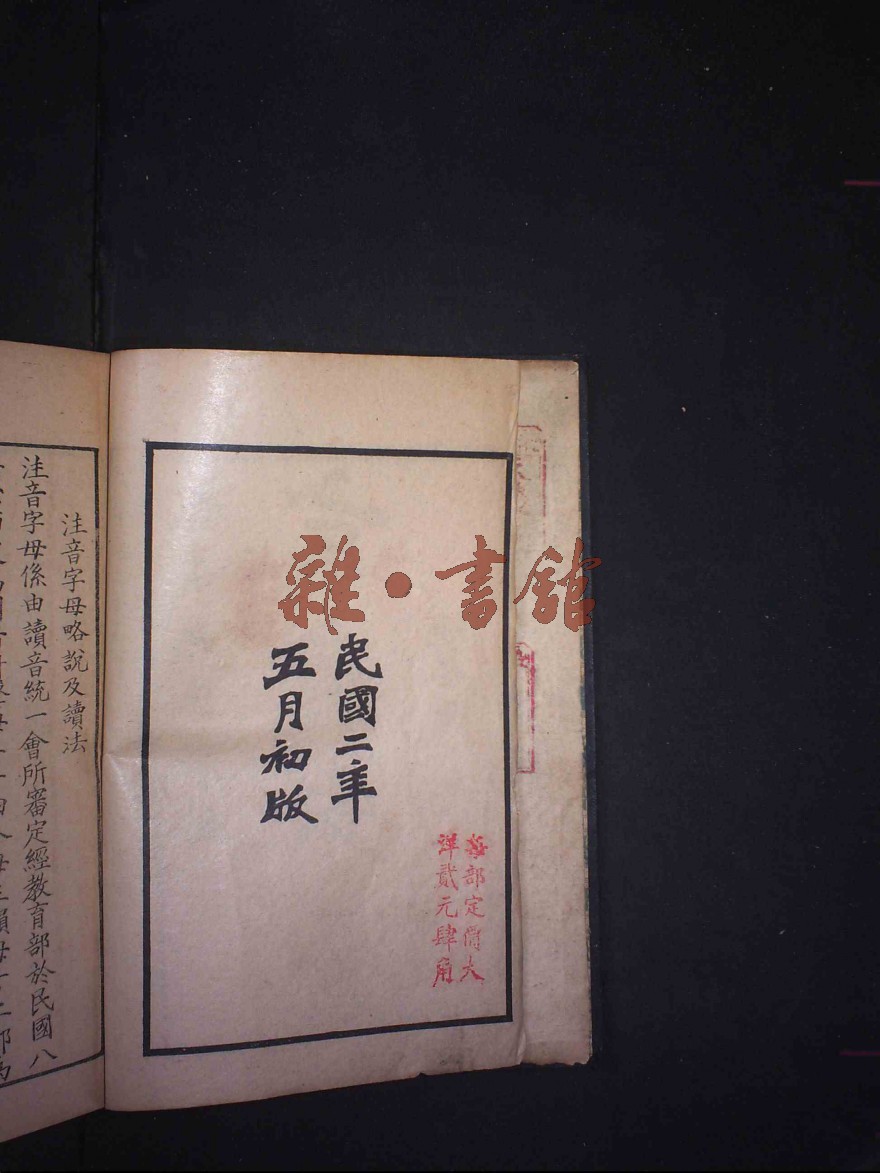 雜·書館
民國二年
五月初版
每部定價大
洋貳元肆角
注音字母略說及讀法
注音字母係由讀音統一會所審定經教育部於民國八